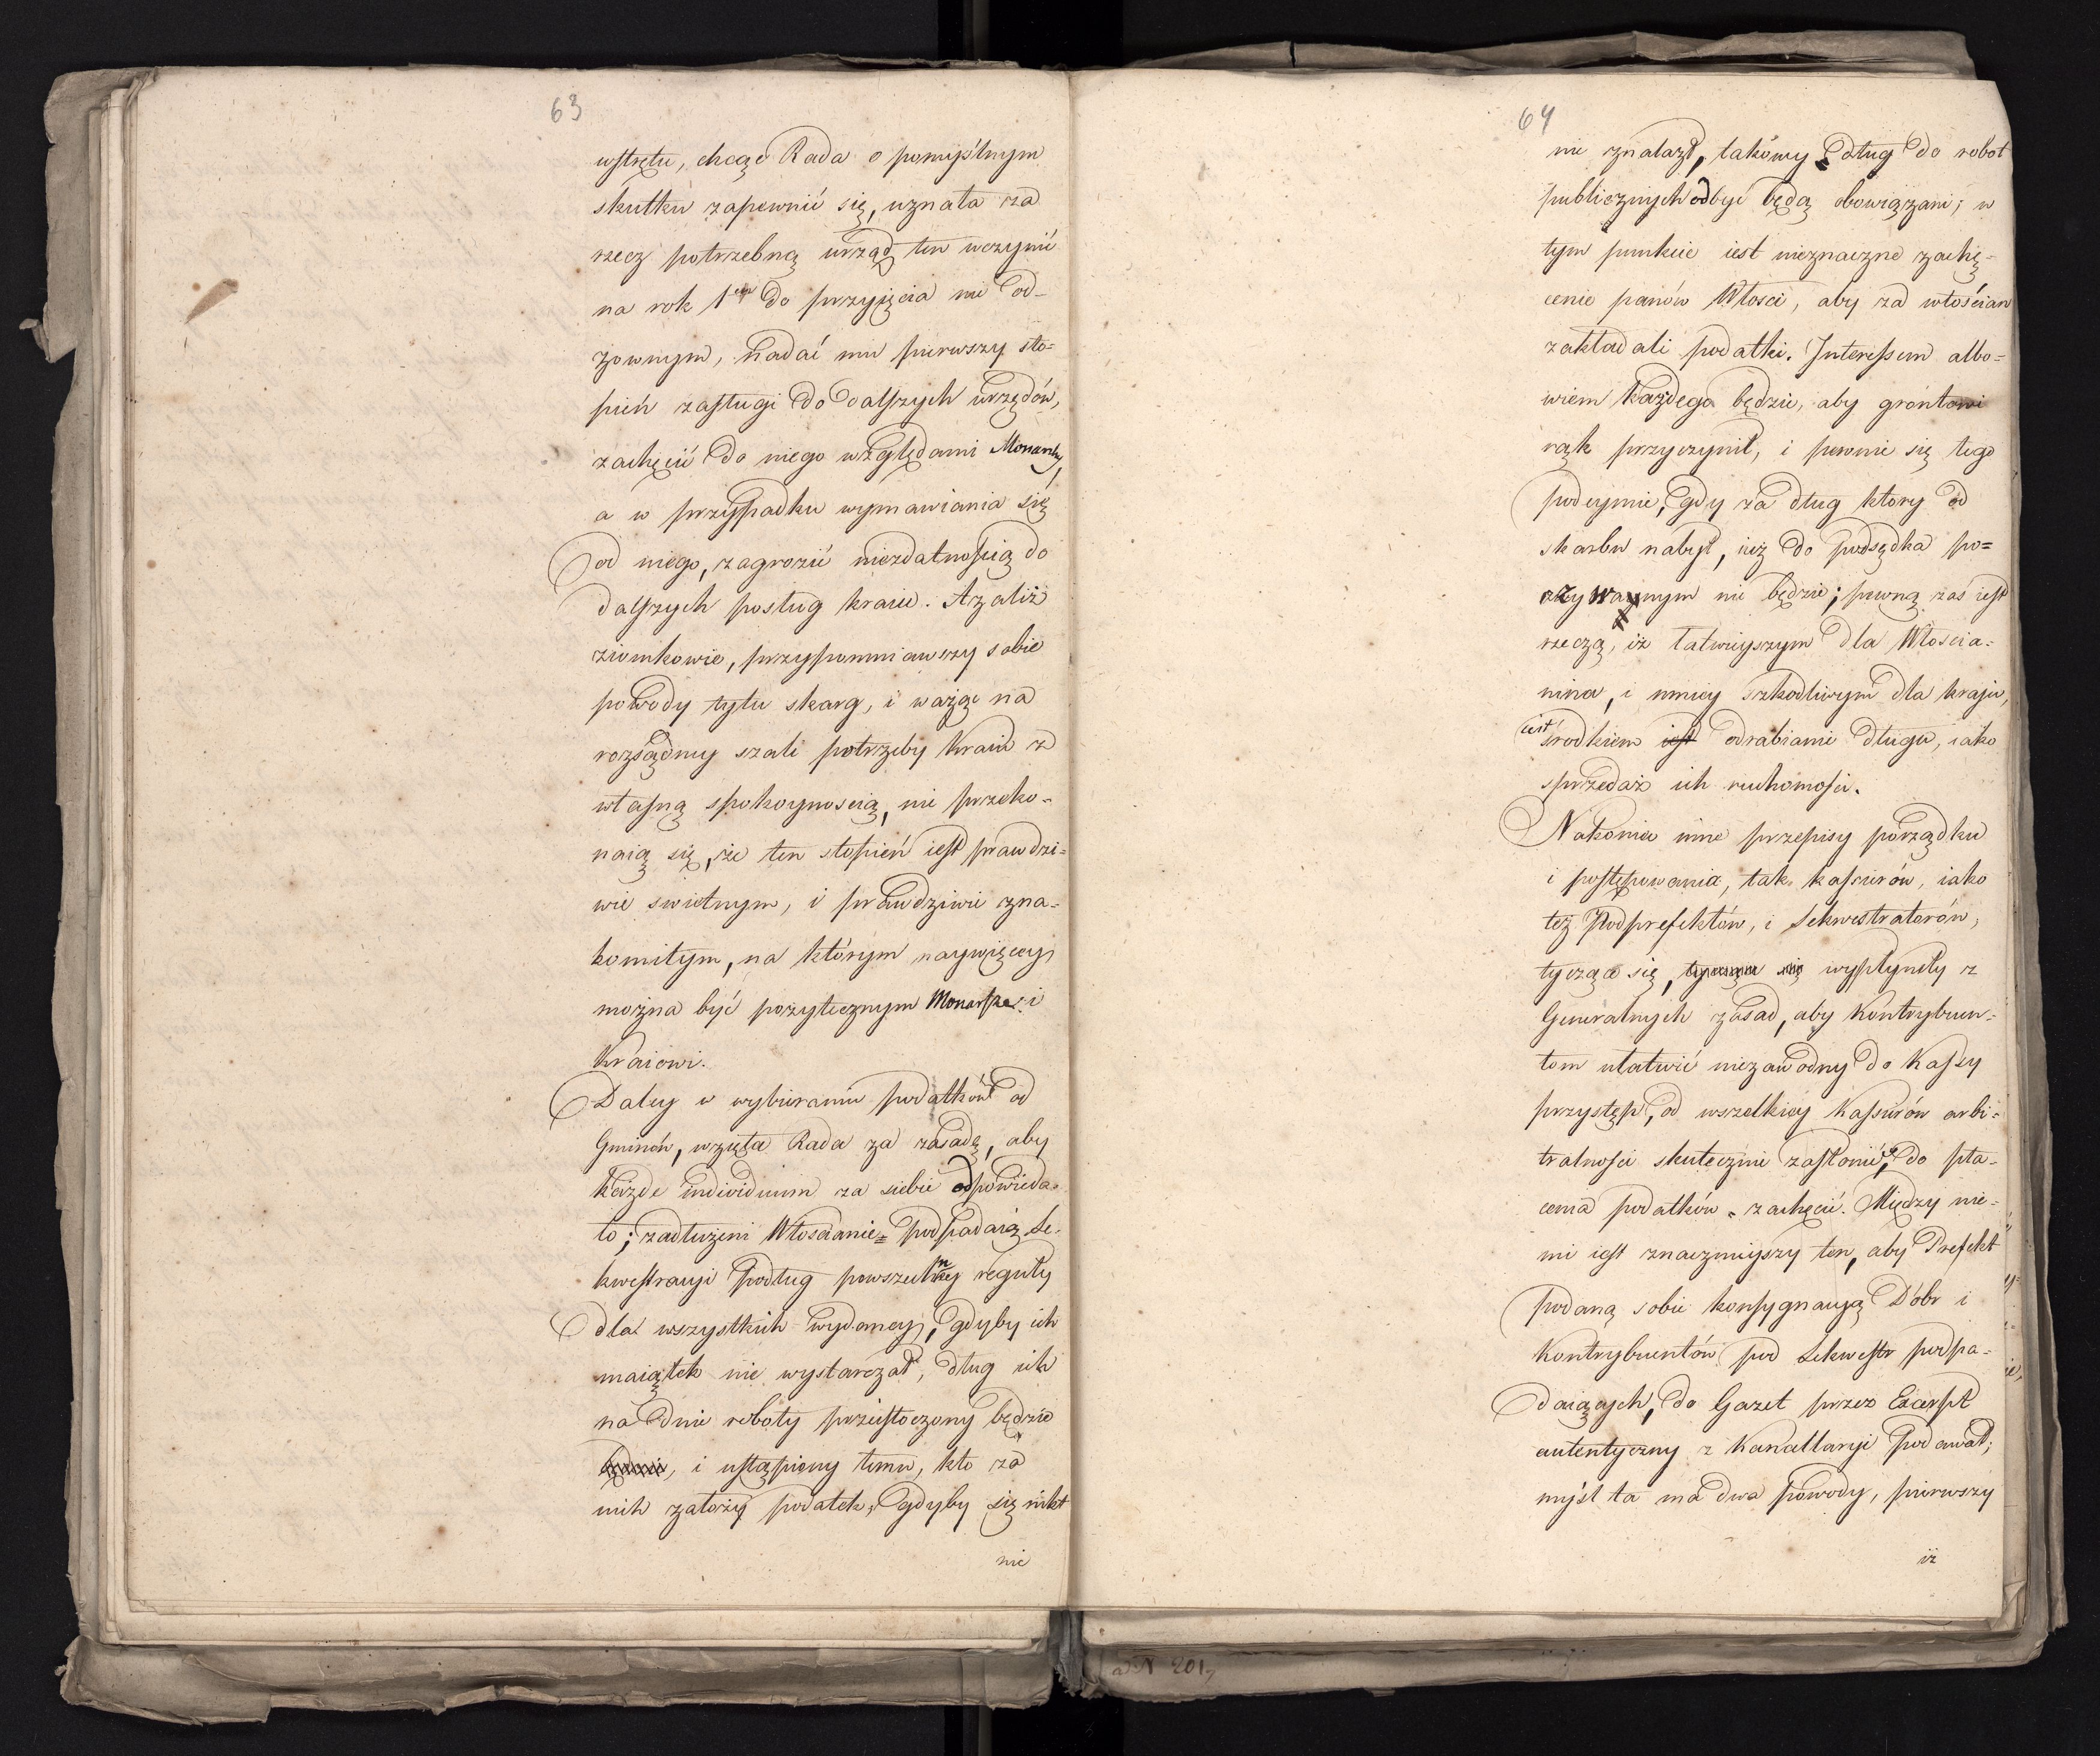 63
wstrętu, chcąc Rada o pomyślnym
skutku zapewnić się, uznała za
rzecz potrzebną urząd ten uczynić
na rok 1en do przyięcia nie od-
zownym, nadać mu pierwszy sto=
pień zasługi do dalszych urzędów,
zachęcić do niego względami Monarchy,
a w przypadku wymawiania się
od niego, zagrozić niezdatnością do
dalszych posług kraiu. Azaliż
ziomkowie, przypomniawszy sobie
powody tylu skarg, i ważąc na
rozsądney szali potrzeby Kraiu z
własną spokoynoscią, nie przeko-
naią się, że ten stopień iest prawdzi=
wie swietnym, i prawdziwie zna=
komitym, na którym naywięcey
można być pożytecznym Monarsze i
Kraiowi.
Daley w wybieraniu podatków od
Gminów, wzięła Rada za zasadę, aby
każde individuum za siebie odpowieda=
ło; zadłużeni Włoscianie podpadaią Se-
kwestracyi podług powszechney reguły
dla wszystkich wydaney, gdyby ich
maiątek nie wystarczał, dług ich
na dnie roboty przeistoczony będzie
, i ustąpiony temu, kto za
nich założy podatek, gdyby się nikt
nie
64
nie znalazł, takowy dług do robot
publicznych odbyć będą obowiązani; w
tym punkcie iest nieznaczne zachę-
cenie panów Włosci, aby za włościan
zakładali podatki. Interessem albo=
wiem każdego będzie, aby grontowi
rąk przyczynił, i pewnie się tego
podeymie, gdy za dług ktory od
skarbu nabył, iuż do podsędka po=
zywanym nie będzie; pewną zaś iest
rzeczą, iż łatwieyszym dla Włoscia=
nina, i mniey szkodliwym dla kraju,
iest środkiem iest odrabianie długu, iako
sprzedaż ich ruchomości.
Nakoniec inne przepisy porządku
i postępowania, tak kassierów, iako
też Podprefektów, i Sekwestratorów,
tyczące się, tyczące się wypłynęły z
Generalnych zasad, aby Kontrybuen=
tom ułatwić niezawodny do Kassy
przystęp, od wszelkiey Kassierów arbi=
tralności skutecznie zasłonić, do pła=
cenia podatków zachęcić. Między nie=
mi iest znacznieyszy ten, aby Prefekt
podaną sobie konsygnacyą Dóbr i
Kontrybuentów pod Sekwestr podpa=
daiących, do Gazet przez Excerpt
autentyczny z Kancellaryi podawał;
myśl ta ma dwa powody, pierwszy
iż